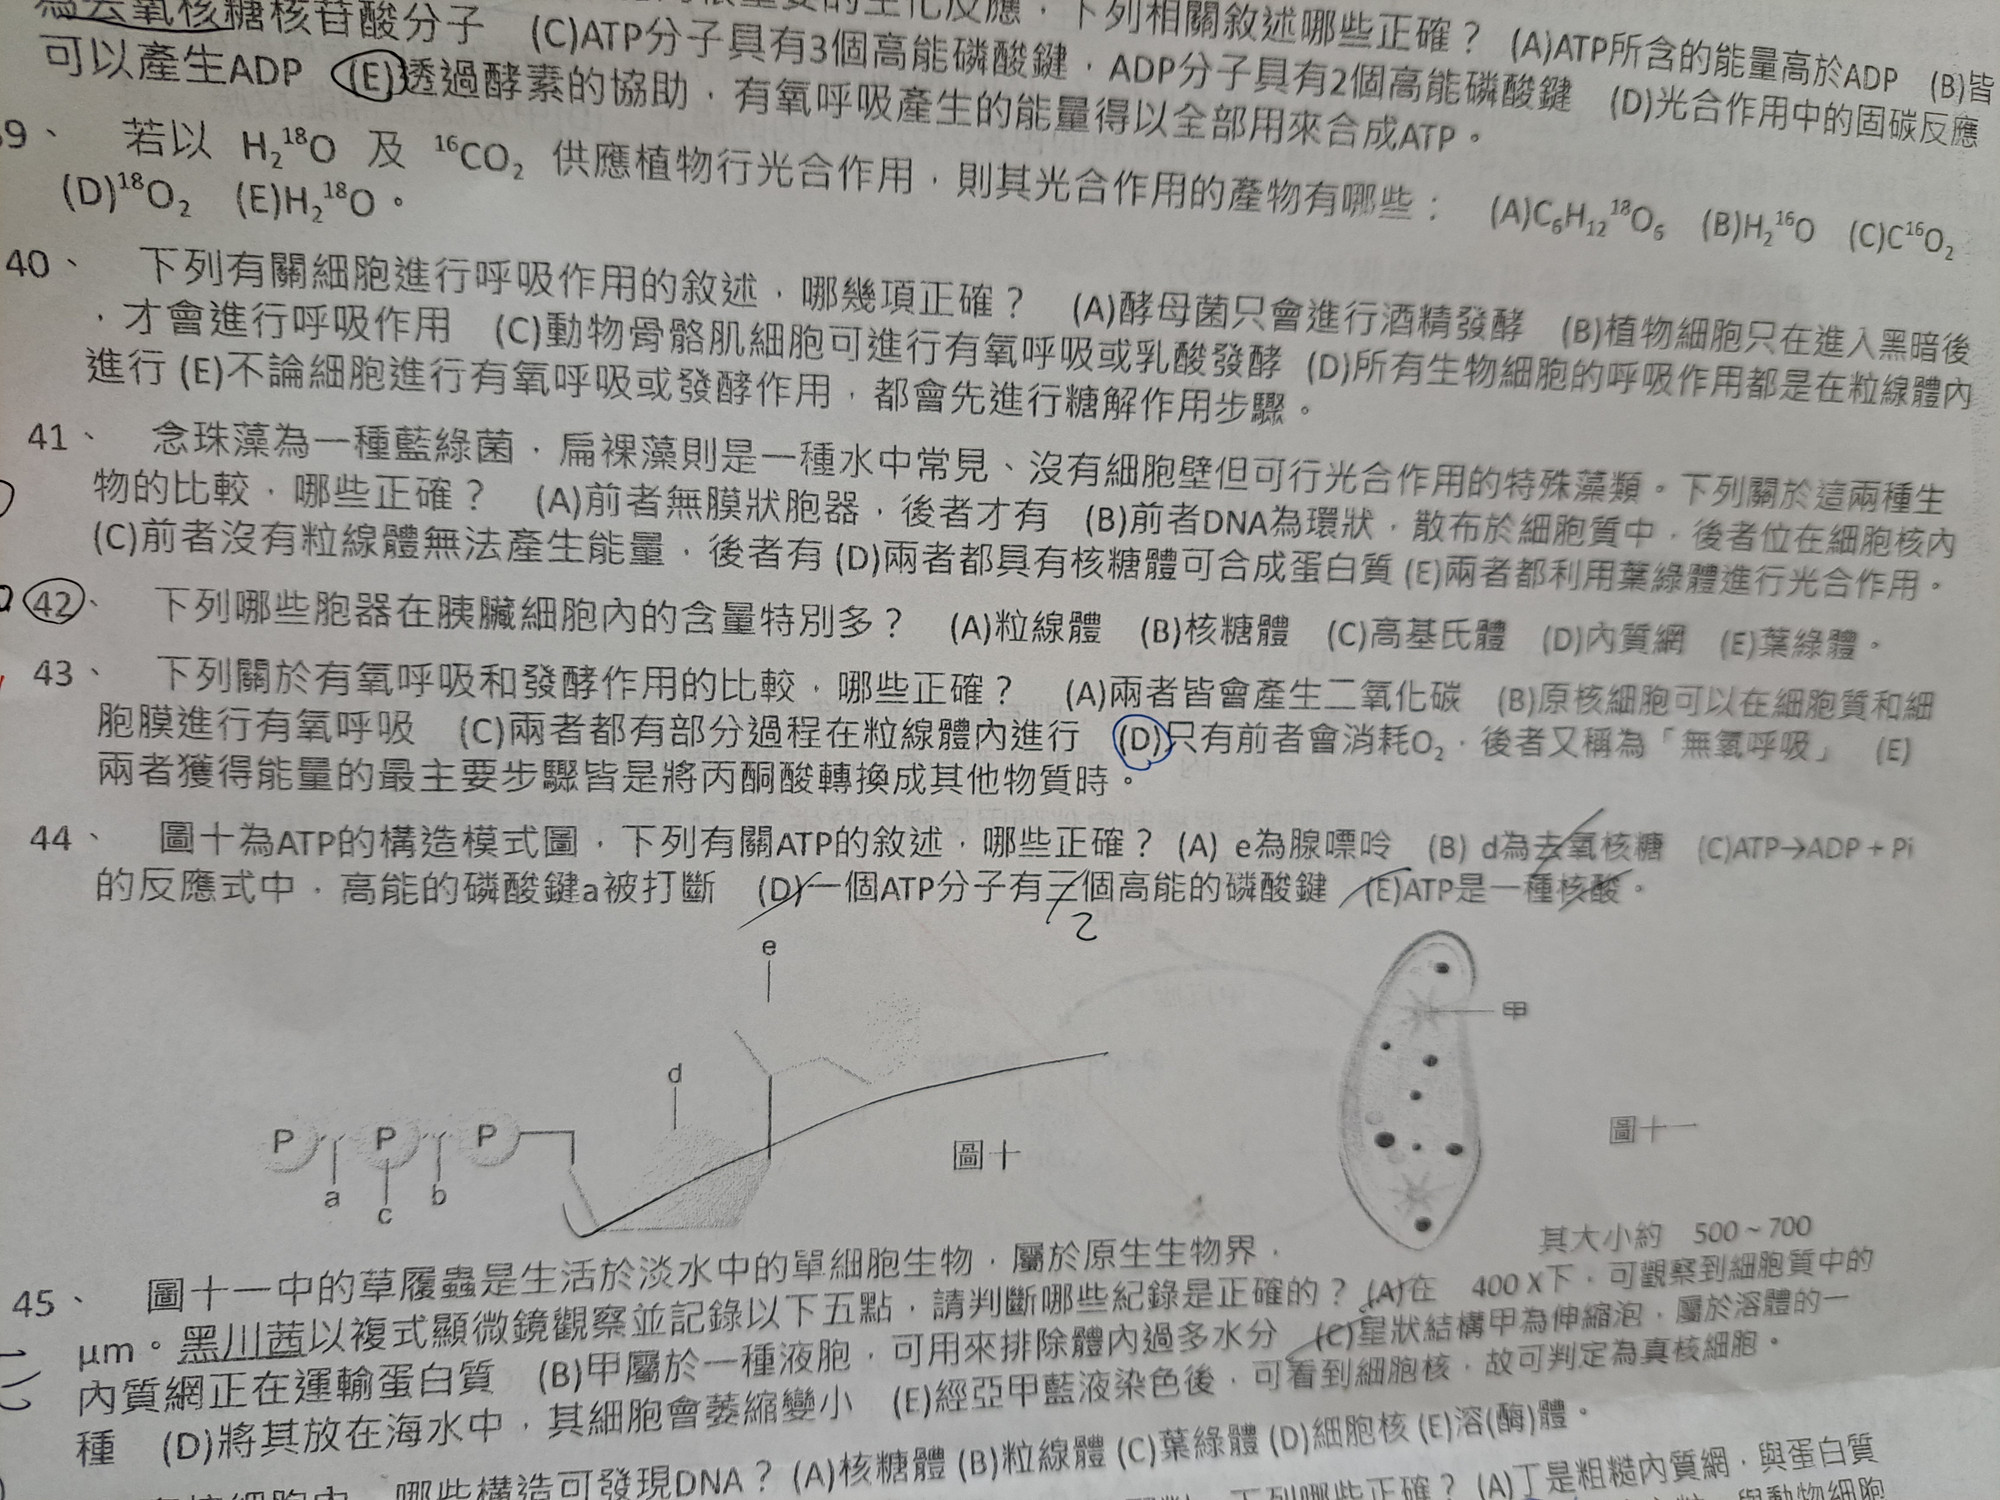 為去氧核糖核苷酸分子 (C)ATP分子具有3個高能磷酸鍵,ADP分子具有2個高能磷酸鍵 (D)光合作用中的固碳反應
生化反應,下列相關敘述哪些正確? (A)ATP所含的能量高於ADP (B)皆
可以產生ADP (E)透過酵素的協助,有氧呼吸產生的能量得以全部用來合成ATP。
39、 若以 H₂¹⁸O 及 ¹⁶CO₂ 供應植物行光合作用,則其光合作用的產物有哪些: (A)C₆H₁₂¹⁸O₆ (B)H₂¹⁶O (C)C¹⁶O₂
(D)¹⁸O₂ (E)H₂¹⁸O。
40、 下列有關細胞進行呼吸作用的敘述,哪幾項正確? (A)酵母菌只會進行酒精發酵 (B)植物細胞只在進入黑暗後
,才會進行呼吸作用 (C)動物骨骼肌細胞可進行有氧呼吸或乳酸發酵 (D)所有生物細胞的呼吸作用都是在粒線體內
進行 (E)不論細胞進行有氧呼吸或發酵作用,都會先進行糖解作用步驟。
41、 念珠藻為一種藍綠菌,扁裸藻則是一種水中常見、沒有細胞壁但可行光合作用的特殊藻類。下列關於這兩種生
物的比較,哪些正確? (A)前者無膜狀胞器,後者才有 (B)前者DNA為環狀,散布於細胞質中,後者位在細胞核內
(C)前者沒有粒線體無法產生能量,後者有 (D)兩者都具有核糖體可合成蛋白質 (E)兩者都利用葉綠體進行光合作用。
42、 下列哪些胞器在胰臟細胞內的含量特別多? (A)粒線體 (B)核糖體 (C)高基氏體 (D)內質網 (E)葉綠體。
43、 下列關於有氧呼吸和發酵作用的比較,哪些正確? (A)兩者皆會產生二氧化碳 (B)原核細胞可以在細胞質和細
胞膜進行有氧呼吸 (C)兩者都有部分過程在粒線體內進行 (D)只有前者會消耗O₂,後者又稱為「無氧呼吸」 (E)
兩者獲得能量的最主要步驟皆是將丙酮酸轉換成其他物質時。
44、 圖十為ATP的構造模式圖,下列有關ATP的敘述,哪些正確? (A) e為腺嘌呤 (B) d為去氧核糖 (C)ATP→ADP + Pi
的反應式中,高能的磷酸鍵a被打斷 (D)一個ATP分子有三個高能的磷酸鍵 (E)ATP是一種核酸。
2
e
甲
d
P P P
圖十
圖十一
a
b
c
其大小約 500~700
45、 圖十一中的草履蟲是生活於淡水中的單細胞生物,屬於原生生物界,
μm。黑川茜以複式顯微鏡觀察並記錄以下五點,請判斷哪些紀錄是正確的? (A)在 400 X下,可觀察到細胞質中的
內質網正在運輸蛋白質 (B)甲屬於一種液胞,可用來排除體內過多水分 (C)星狀結構甲為伸縮泡,屬於溶體的一
種 (D)將其放在海水中,其細胞會萎縮變小 (E)經亞甲藍液染色後,可看到細胞核,故可判定為真核細胞。
哪些構造可發現DNA? (A)核糖體 (B)粒線體 (C)葉綠體 (D)細胞核 (E)溶(酶)體。
下列哪些正確? (A)丁是粗糙內質網,與蛋白質
與動物細胞